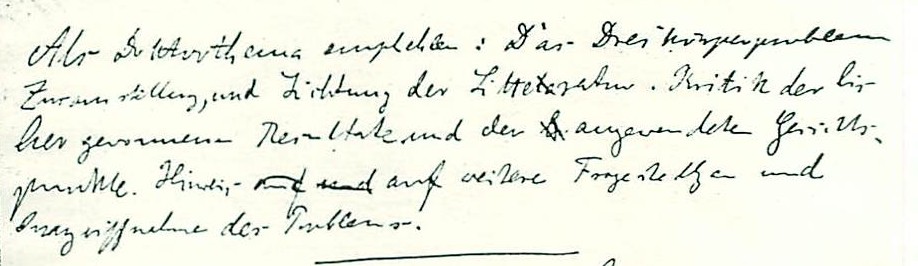 Als Doktorthema empfehlen: Das Dreikörperproblem
Zusammenstellung und Sichtung der Litteratur. Kritik der bis-
her gewonnenen Resultate und der angewendeten Gesichts-
punkte. Hinweis auf und auf weitere Fragestellgen und
Inangriffnahme des Problems.